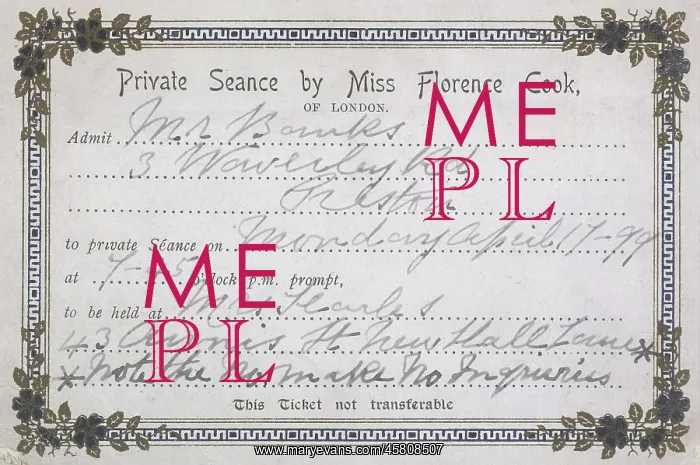 Private Seance by Miss Florence Cook,
OF LONDON.
Admit Mr Banks
3 Waverley Rd
Preston
to private Séance on Monday April 17-99
at 7- o'clock p.m. prompt,
to be held at Mrs Searles
43 St New Hall Lane*
* Note the No make No Inquiries
This Ticket not transferable
ME
PL
ME
PL
www.maryevans.com/45808507